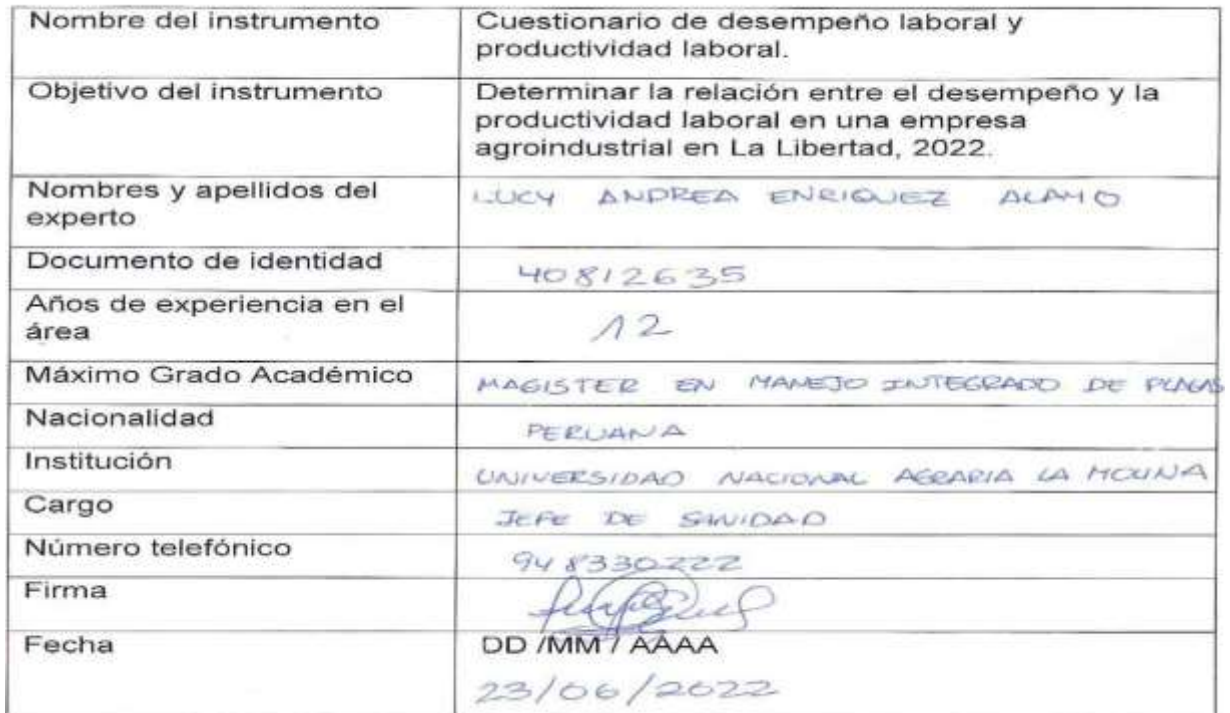 Nombre del instrumento
Cuestionario de desempeño laboral y
productividad laboral.
Objetivo del instrumento
Determinar la relación entre el desempeño y la
productividad laboral en una empresa
agroindustrial en La Libertad, 2022.
Nombres y apellidos del
experto
LUCY ANDREA ENRIQUEZ ALAMO
Documento de identidad
40812635
Años de experiencia en el
área
12
Máximo Grado Académico
MAGISTER EN MANEJO INTEGRADO DE PLAGAS
Nacionalidad
PERUANA
Institución
UNIVERSIDAD NACIONAL AGRARIA LA MOLINA
Cargo
JEFE DE SANIDAD
Número telefónico
948330222
Firma
Fecha
DD /MM / AAAA
23/06/2022